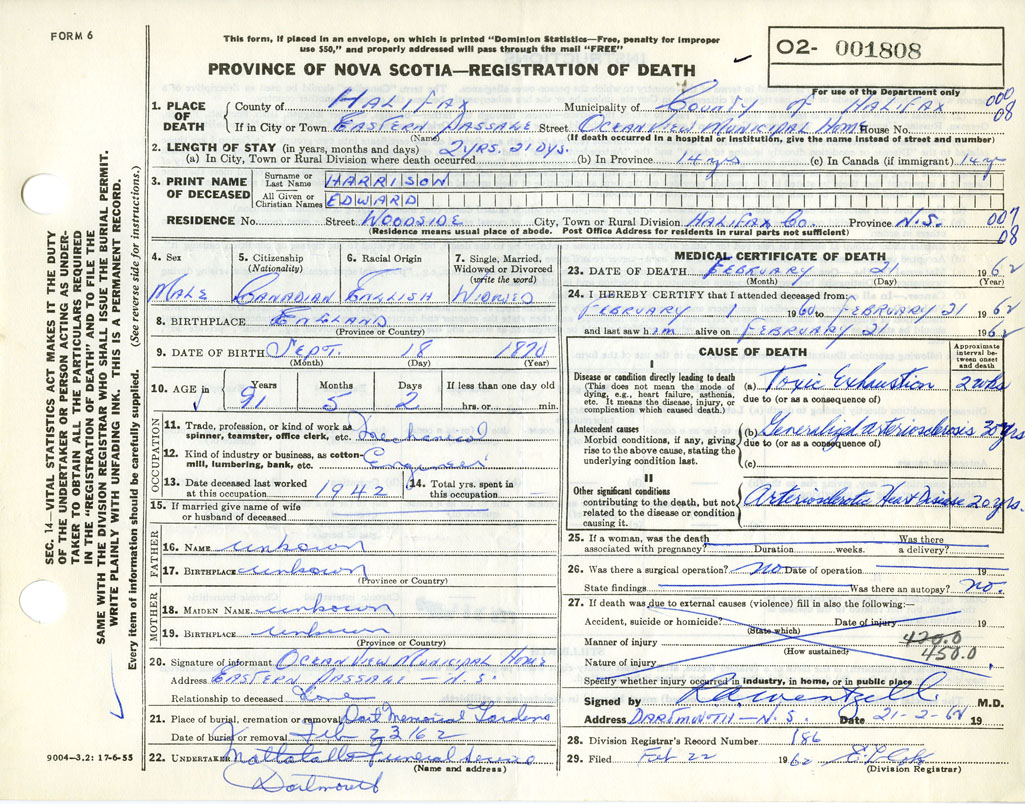 FORM 6
This form, if placed in an envelope, on which is printed "Dominion Statistics—Free, penalty for improper
use $50," and properly addressed will pass through the mail "FREE"
O2- 001808
For use of the Department only
PROVINCE OF NOVA SCOTIA—REGISTRATION OF DEATH
SEC. 14—VITAL STATISTICS ACT MAKES IT THE DUTY
OF THE UNDERTAKER OR PERSON ACTING AS UNDER-
TAKER TO OBTAIN ALL THE PARTICULARS REQUIRED
IN THE "REGISTRATION OF DEATH" AND TO FILE THE
SAME WITH THE DIVISION REGISTRAR WHO SHALL ISSUE THE BURIAL PERMIT.
WRITE PLAINLY WITH UNFADING INK. THIS IS A PERMANENT RECORD.
Every item of information should be carefully supplied. (See reverse side for instructions.)
1. PLACE OF DEATH
County of HALIFAX Municipality of COUNTY OF HALIFAX 000
08
If in City or Town EASTERN PASSAGE Street OCEAN VIEW MUNICIPAL HOME House No.
(Name) (If death occurred in a hospital or institution, give the name instead of street and number)
2. LENGTH OF STAY (in years, months and days) 2 YRS. 21 DYS.
(a) In City, Town or Rural Division where death occurred (b) In Province 14 yrs (c) In Canada (if immigrant) 14 yr
3. PRINT NAME OF DECEASED
Surname or Last Name HARRISON
All Given or Christian Names EDWARD
RESIDENCE No. Street WOODSIDE City, Town or Rural Division HALIFAX CO. Province N.S. 007
08
(Residence means usual place of abode. Post Office Address for residents in rural parts not sufficient)
4. Sex
MALE
5. Citizenship
(Nationality)
CANADIAN
6. Racial Origin
ENGLISH
7. Single, Married,
Widowed or Divorced
(write the word)
WIDOWED
8. BIRTHPLACE ENGLAND
(Province or Country)
9. DATE OF BIRTH SEPT. 18 1870
(Month) (Day) (Year)
10. AGE in Years Months Days If less than one day old
91 5 2 hrs. or min.
OCCUPATION
11. Trade, profession, or kind of work as
spinner, teamster, office clerk, etc. Mechanical
12. Kind of industry or business, as cotton-
mill, lumbering, bank, etc. Engineer
13. Date deceased last worked
at this occupation 1942
14. Total yrs. spent in
this occupation
15. If married give name of wife
or husband of deceased
FATHER
16. NAME unknown
17. BIRTHPLACE unknown
(Province or Country)
MOTHER
18. MAIDEN NAME unknown
19. BIRTHPLACE unknown
(Province or Country)
20. Signature of informant OCEAN VIEW MUNICIPAL HOME
Address EASTERN PASSAGE - N.S.
Relationship to deceased
21. Place of burial, cremation or removal Dart Memorial Gardens
Date of burial or removal Feb 23 / 62
22. UNDERTAKER Funeral
(Name and address)
Dartmouth
9004—3.2: 17-6-55
MEDICAL CERTIFICATE OF DEATH
23. DATE OF DEATH FEBRUARY 21 1962
(Month) (Day) (Year)
24. I HEREBY CERTIFY that I attended deceased from:
FEBRUARY 1 1960 to FEBRUARY 21 1962
and last saw him alive on FEBRUARY 21 1962
CAUSE OF DEATH
Approximate
interval be-
tween onset
and death
I
Disease or condition directly leading to death
(This does not mean the mode of
dying, e.g., heart failure, asthenia,
etc. It means the disease, injury, or
complication which caused death.)
(a) Toxic Exhaustion 2 wks
due to (or as a consequence of)
Antecedent causes
Morbid conditions, if any, giving
rise to the above cause, stating the
underlying condition last.
(b) Generalized Arteriosclerosis 30 yrs
due to (or as a consequence of)
(c)
II
Other significant conditions
contributing to the death, but not
related to the disease or condition
causing it.
Arteriosclerotic Heart Disease 20 yrs.
25. If a woman, was the death Was there
associated with pregnancy? Duration weeks. a delivery?
26. Was there a surgical operation? No Date of operation 19
State findings Was there an autopsy? No.
27. If death was due to external causes (violence) fill in also the following:—
Accident, suicide or homicide? Date of injury 19
(State which)
Manner of injury 420.0
(How sustained) 450.0
Nature of injury
Specify whether injury occurred in industry, in home, or in public place
Signed by RAWentzell M.D.
Address DARTMOUTH - N.S. Date 21-2-62 19
28. Division Registrar's Record Number 186
29. Filed Feb 22 1962
(Division Registrar)